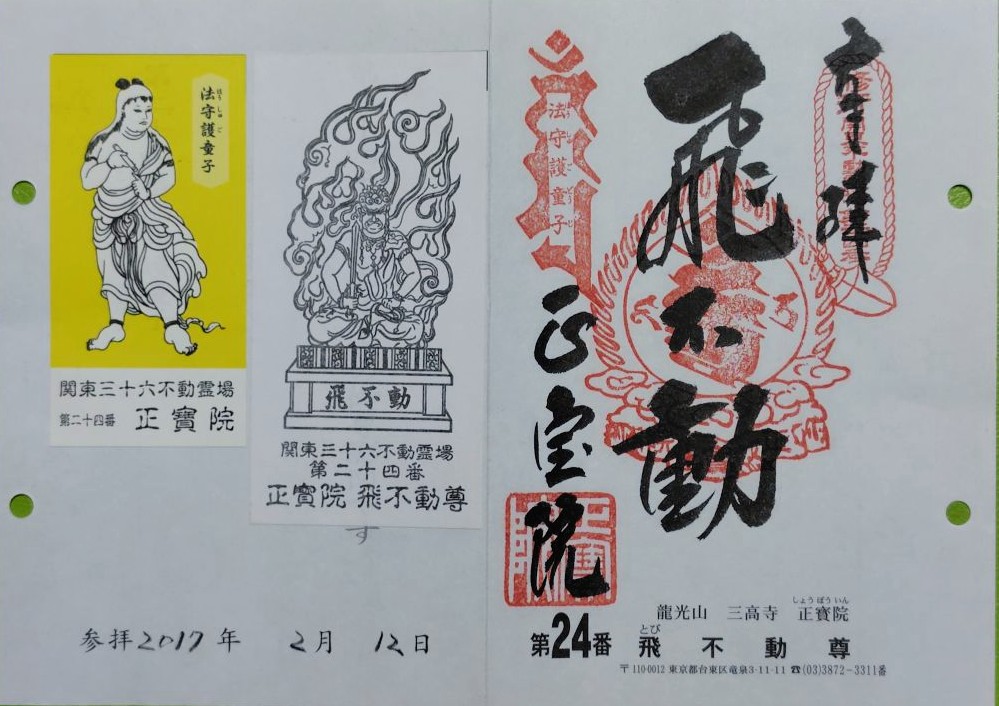 法守護童子
ほうしゅご
関東三十六不動霊場
第二十四番 正寳院
飛不動
関東三十六不動霊場
第二十四番
正寳院 飛不動尊
す
参拝2017年 2月 12日
奉拝
飛不動
法守護童子
正宝院
龍光山 三高寺 正寳院
しょうぼういん
第24番 飛不動尊
とび
〒110-0012 東京都台東区竜泉3-11-11 ☎(03)3872-3311番